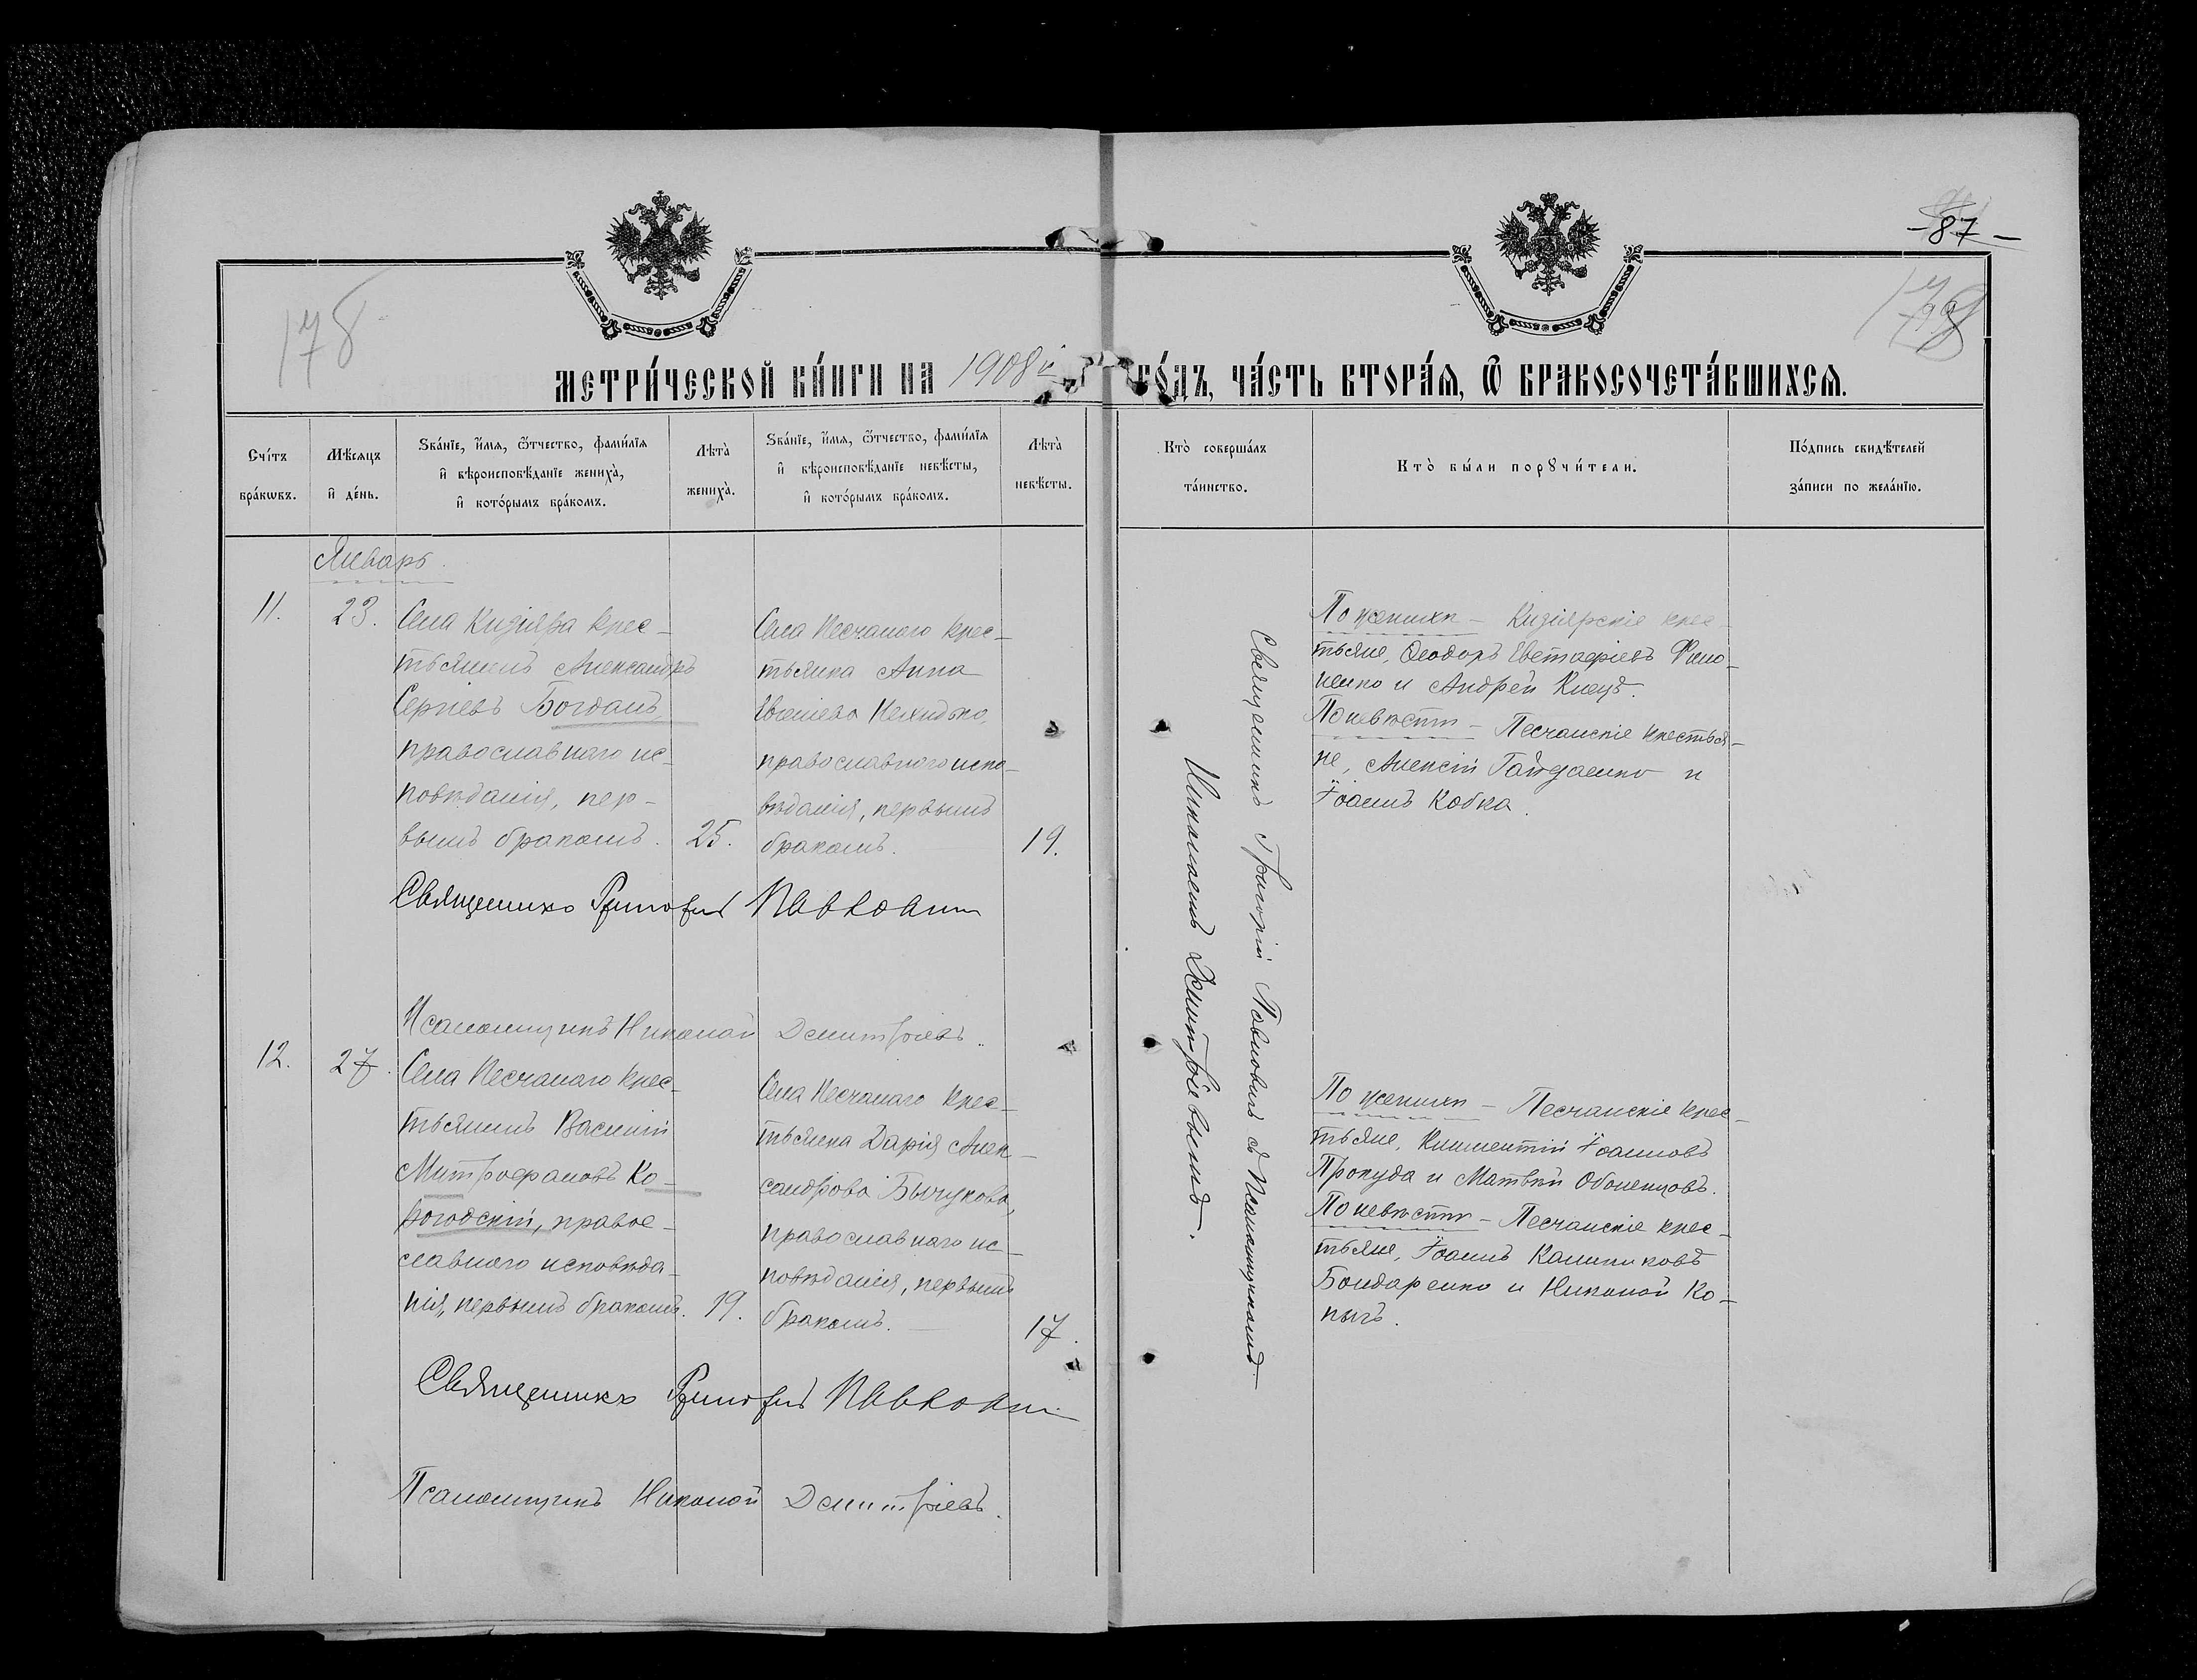 -87-
178
МЕТРИ́ЧЕСКОЙ КНИ́ГИ НА 1908й ГО́ДЪ, ЧА́СТЬ ВТОРА́Ѧ, Ѽ БРАКОСОЧЕТА́ВШИХСѦ.
Сче́тъ бра́кѡвъ.
Мѣ́сѧцъ и҆ де́нь.
Ѕва́нїе, и҆́мѧ, ѻ҆́тчество, фами́лїѧ
и҆ вѣроисповѣ́данїе жениха̀,
и҆ кото́рымъ бра́комъ.
Лѣта̀ жениха̀.
Ѕва́нїе, и҆́мѧ, ѻ҆́тчество, фами́лїѧ
и҆ вѣроисповѣ́данїе невѣ́сты,
и҆ кото́рымъ бра́комъ.
Лѣта̀ невѣ́сты.
Кто̀ соверша́лъ та́инство.
Кто̀ бы́ли порꙋчи́тели.
По́дпись свидѣ́телей
за́писи по жела́нїю.
Январь
11.
23.
Села Кизіяра крес-
тьянинъ Александръ
Сергіевъ Богданъ,
православнаго ис-
повѣданія, пер-
вымъ бракомъ.
25.
Села Песчанаго крес-
тьянка Анна
православнаго испо-
вѣданія, первымъ
бракомъ.
19.
Священникъ Григорій Павловичъ съ Псаломщикомъ
Николаемъ Дмитріевымъ.
По женихѣ - Кизіярскіе крес-
тьяне, Ѳеодоръ Евстафіевъ
и Андрей
По невѣстѣ - Песчанскіе крестья-
не, Алексій Гайдаенко и
Іоаннъ Кобка.
Священникъ Григорій Павловичъ
Псаломщикъ Николай Дмитріевъ.
12.
27.
Села Песчанаго крес-
тьянинъ Василій
Митрофановъ Ко-
православ-
славнаго исповѣда-
нія, первымъ бракомъ.
19.
Села Песчанаго крес-
тьянка Дарія Алек-
сандрова Бычукова,
православнаго ис-
повѣданія, первымъ
бракомъ.
17.
По женихѣ - Песчанскіе крес-
тьяне, Климентій Іоанновъ
Прокуда и Матвѣй Оболенцовъ.
По невѣстѣ - Песчанскіе крес-
тьяне, Іоаннъ Калиниковъ
Бондаренко и Николай Ко-
пычъ.
Священникъ Григорій Павловичъ
Псаломщикъ Николай Дмитріевъ.